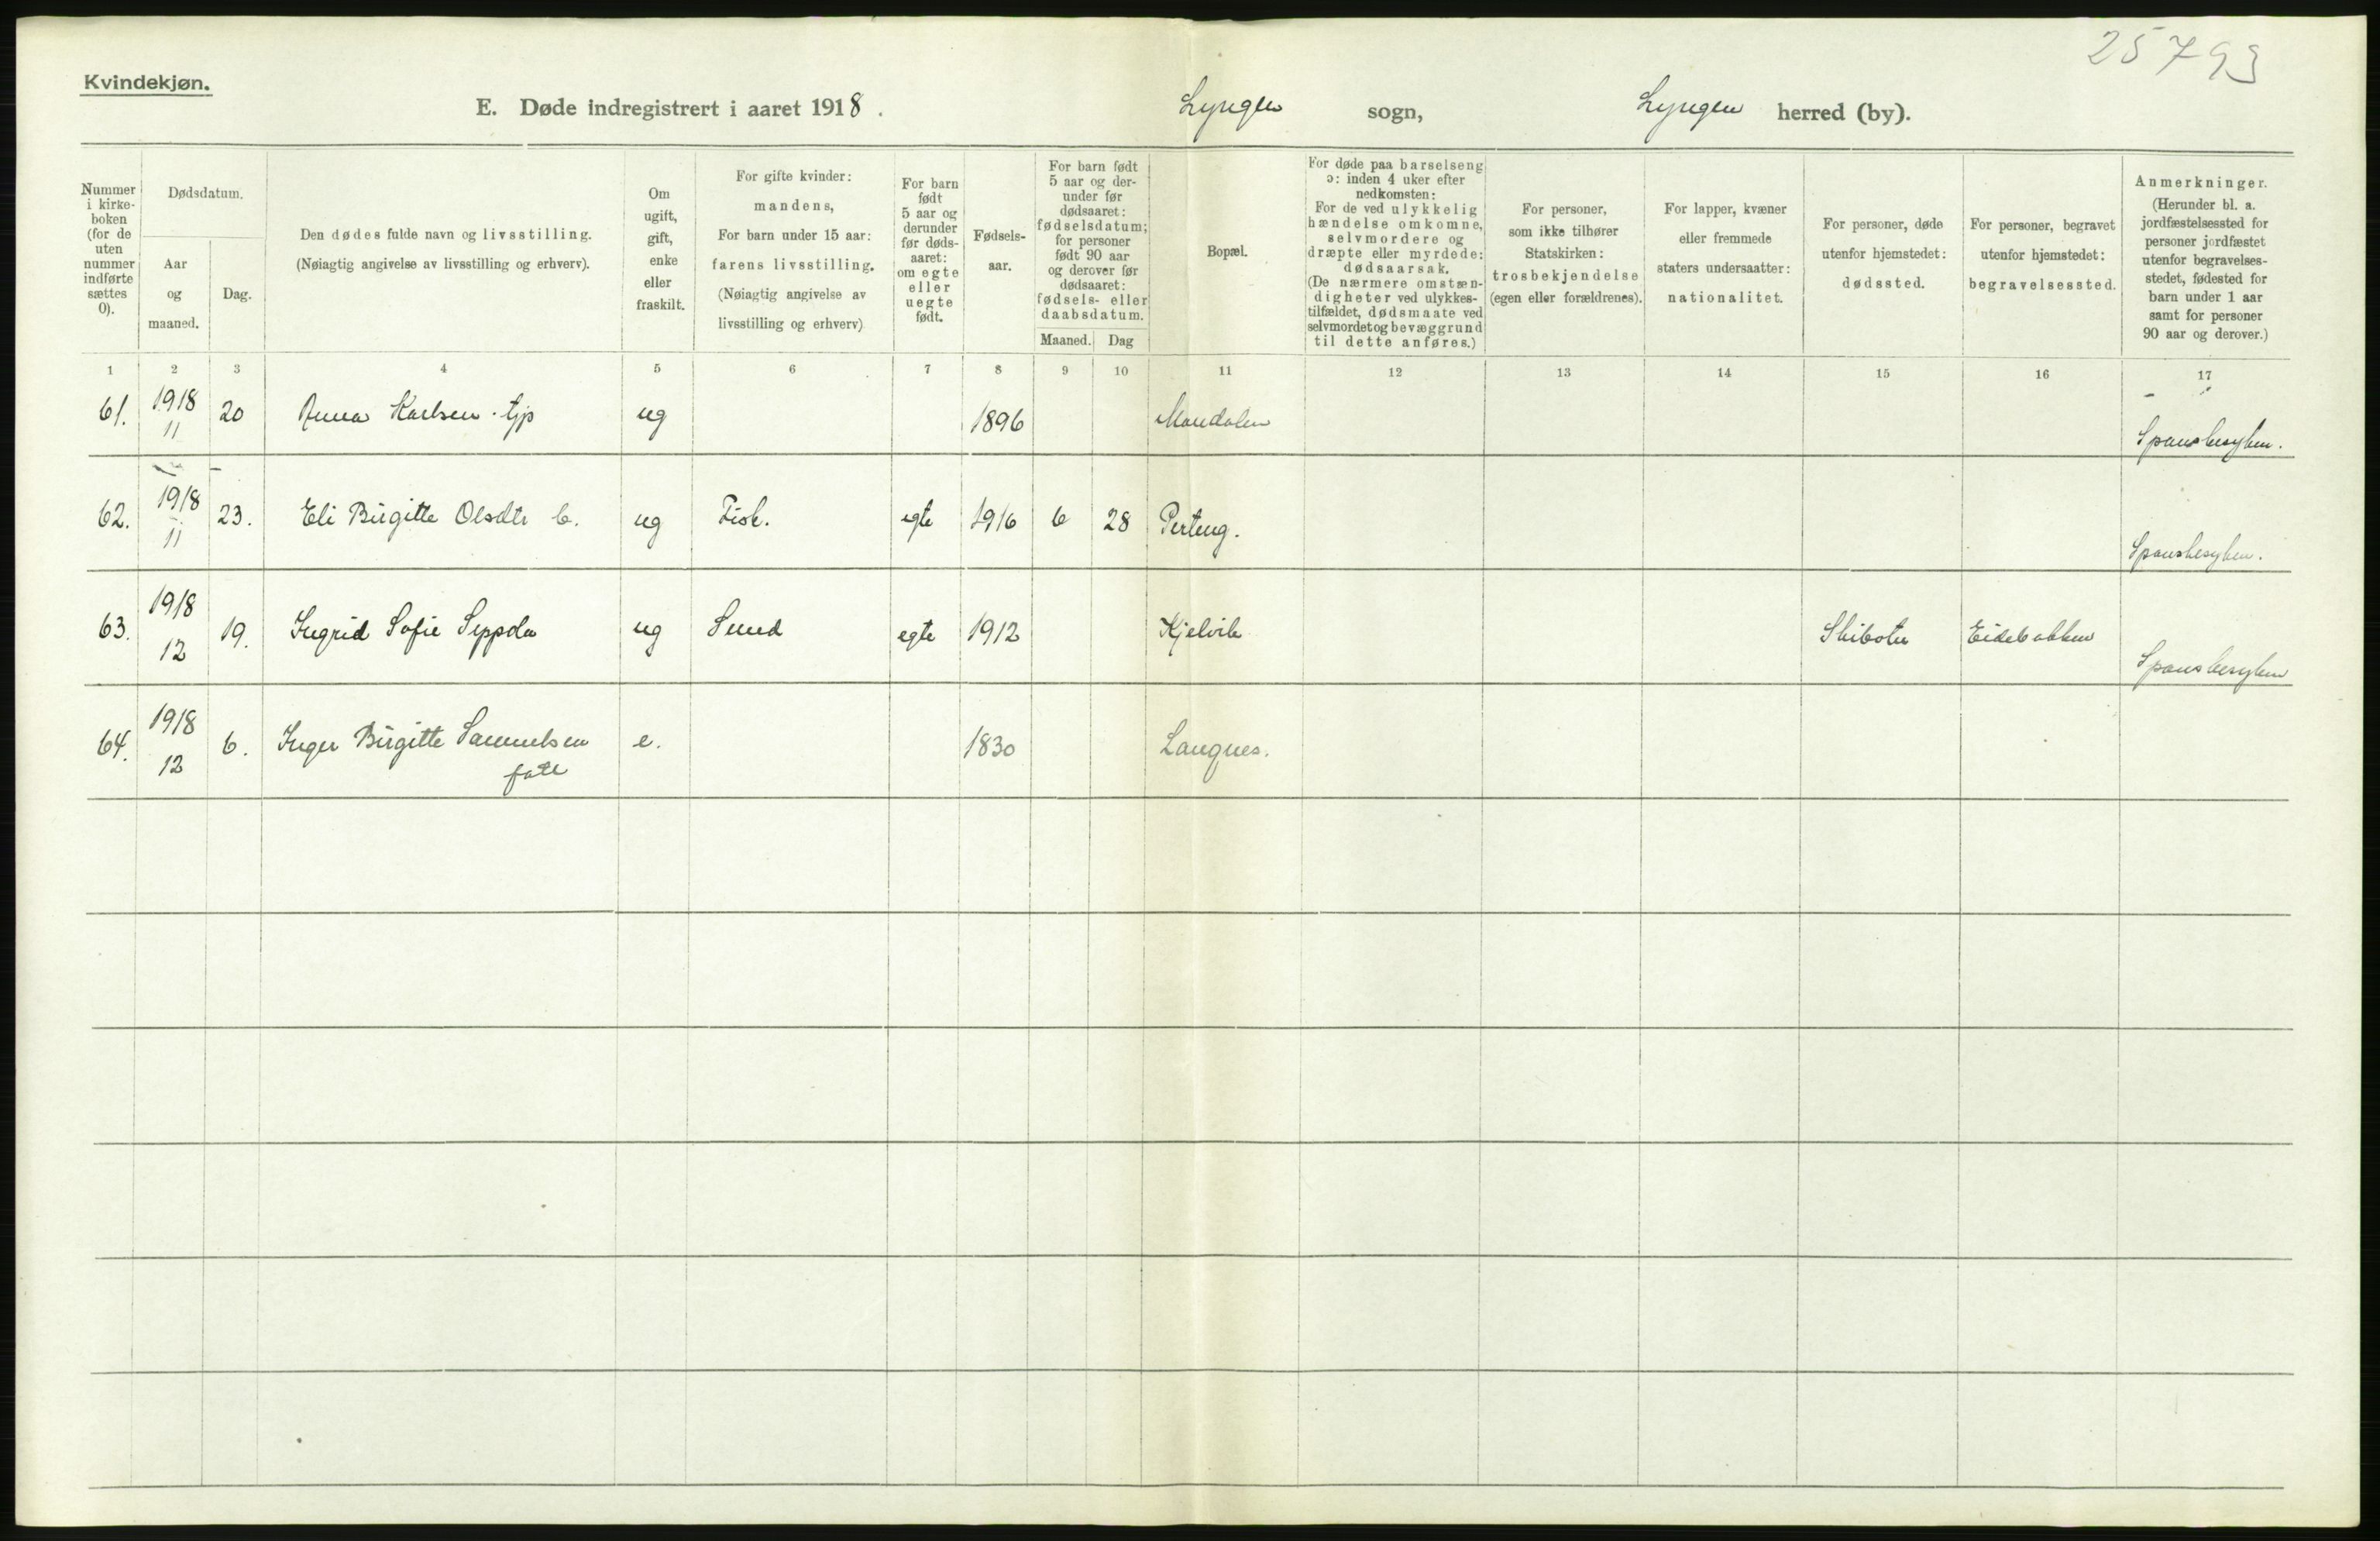 25793
Kvindekjøn.
E. Døde indregistrert i aaret 1918. Lyngen sogn, Lyngen herred (by).
Nummer i kirke-boken (for de uten nummer indførte sættes 0).
Dødsdatum.
Aar og maaned.
Dag.
Den dødes fulde navn og livsstilling.
(Nøiagtig angivelse av livsstilling og erhverv).
Om ugift, gift, enke eller fraskilt.
For gifte kvinder: mandens,
For barn under 15 aar: farens livsstilling.
(Nøiagtig angivelse av livsstilling og erhverv)
For barn født 5 aar og derunder før døds-aaret: om egte eller uegte født.
Fødsels-aar.
For barn født 5 aar og der-under før dødsaaret: fødselsdatum; for personer født 90 aar og derover før dødsaaret: fødsels- eller daabsdatum.
Maaned. Dag
Bopæl.
For døde paa barselseng ɔ: inden 4 uker efter nedkomsten:
For de ved ulykkelig hændelse omkomne, selvmordere og dræpte eller myrdede: dødsaarsak.
(De nærmere omstæn-digheter ved ulykkes-tilfældet, dødsmaate ved selvmordet og bevæggrund til dette anføres.)
For personer, som ikke tilhører Statskirken: trosbekjendelse (egen eller forældrenes).
For lapper, kvæner eller fremmede staters undersaatter: nationalitet.
For personer, døde utenfor hjemstedet: dødssted.
For personer, begravet utenfor hjemstedet: begravelsessted.
Anmerkninger.
(Herunder bl. a. jordfæstelsessted for personer jordfæstet utenfor begravelses-stedet, fødested for barn under 1 aar samt for personer 90 aar og derover.)
1 2 3 4 5 6 7 8 9 10 11 12 13 14 15 16 17
61. 1918 11 20 Anna Karlsen tjp ug 1896 Mandalen Spanskesyken.
62. 1918 11 23. Eli Birgitte Olsdtr b. ug Fisk. egte 1916 6 28 Perteng. Spanskesyken.
63. 1918 12 19. Ingrid Sofie Seppola ug Smed egte 1912 Kjelvik Skiboten Eidebakken Spanskesyken
64. 1918 12 6. Inger Birgitte Samuelsen e. 1830 Langnes.